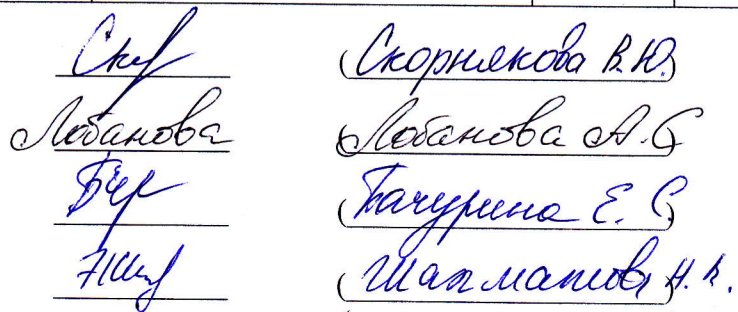 Скр (Скорнякова В.Ю.)
Лобанова (Лобанова А.С.)
Бчр (Бачурина Е.С.)
(Шахматова Н.В.)